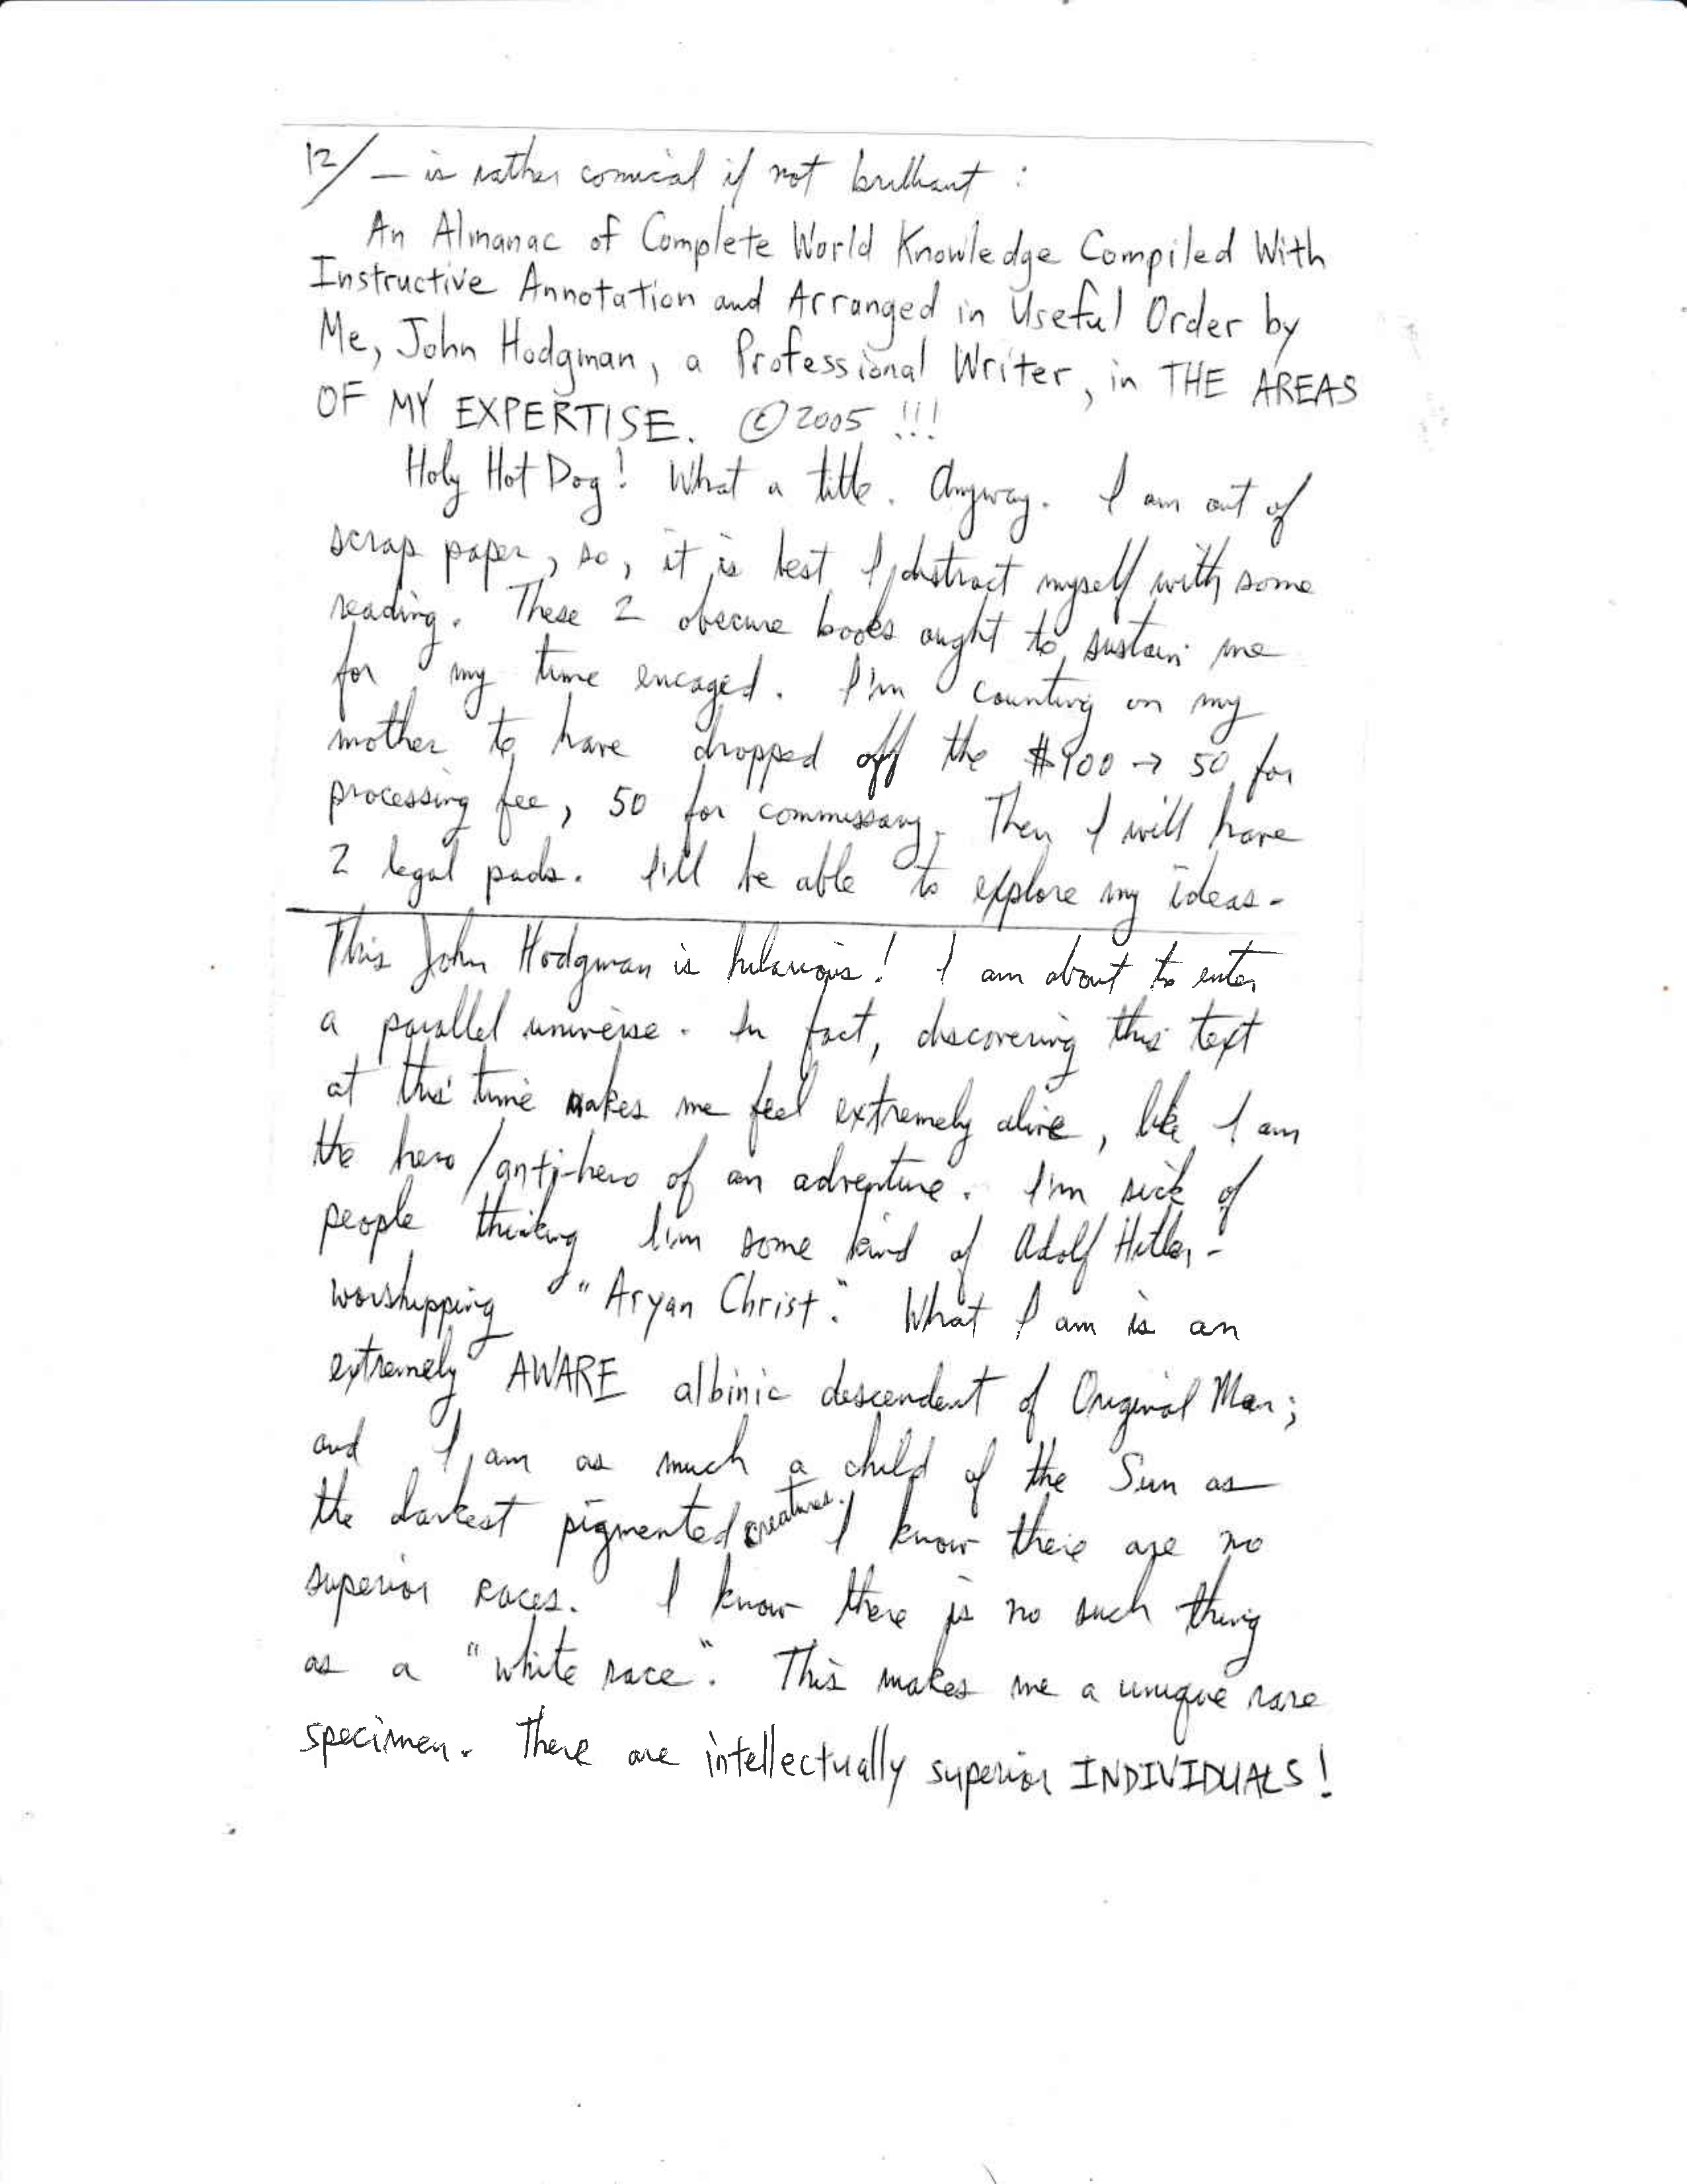 12/ — is rather comical if not brilliant :
An Almanac of Complete World Knowledge Compiled With
Instructive Annotation and Arranged in Useful Order by
Me, John Hodgman, a Professional Writer, in THE AREAS
OF MY EXPERTISE. © 2005 !!!
Holy Hot Dog! What a title. Anyway. I am out of
scrap paper, so, it is best I distract myself with some
reading. These 2 obscure books ought to sustain me
for my time encaged. I'm counting on my
mother to have dropped off the $100 → 50 for
processing fee, 50 for commissary. Then I will have
2 legal pads. I'll be able to explore my ideas-
This John Hodgman is hilarious! I am about to enter
a parallel universe. In fact, discovering this text
at this time makes me feel extremely alive, like I am
the hero/anti-hero of an adventure. I'm sick of
people thinking I'm some kind of Adolf Hitler-
worshipping "Aryan Christ." What I am is an
extremely AWARE albinic descendent of Original Man;
and I am as much a child of the Sun as
the darkest pigmented creatures. I know there are no
superior races. I know there is no such thing
as a "white race". This makes me a unique rare
specimen. There are intellectually superior INDIVIDUALS!